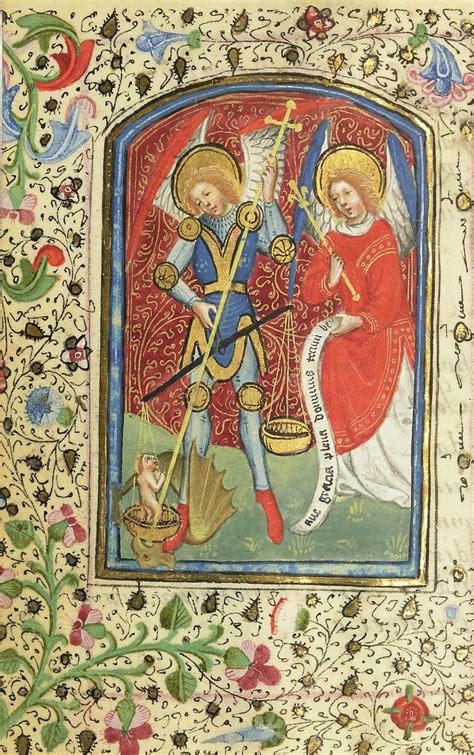 aue gracia plena dominus tecum be